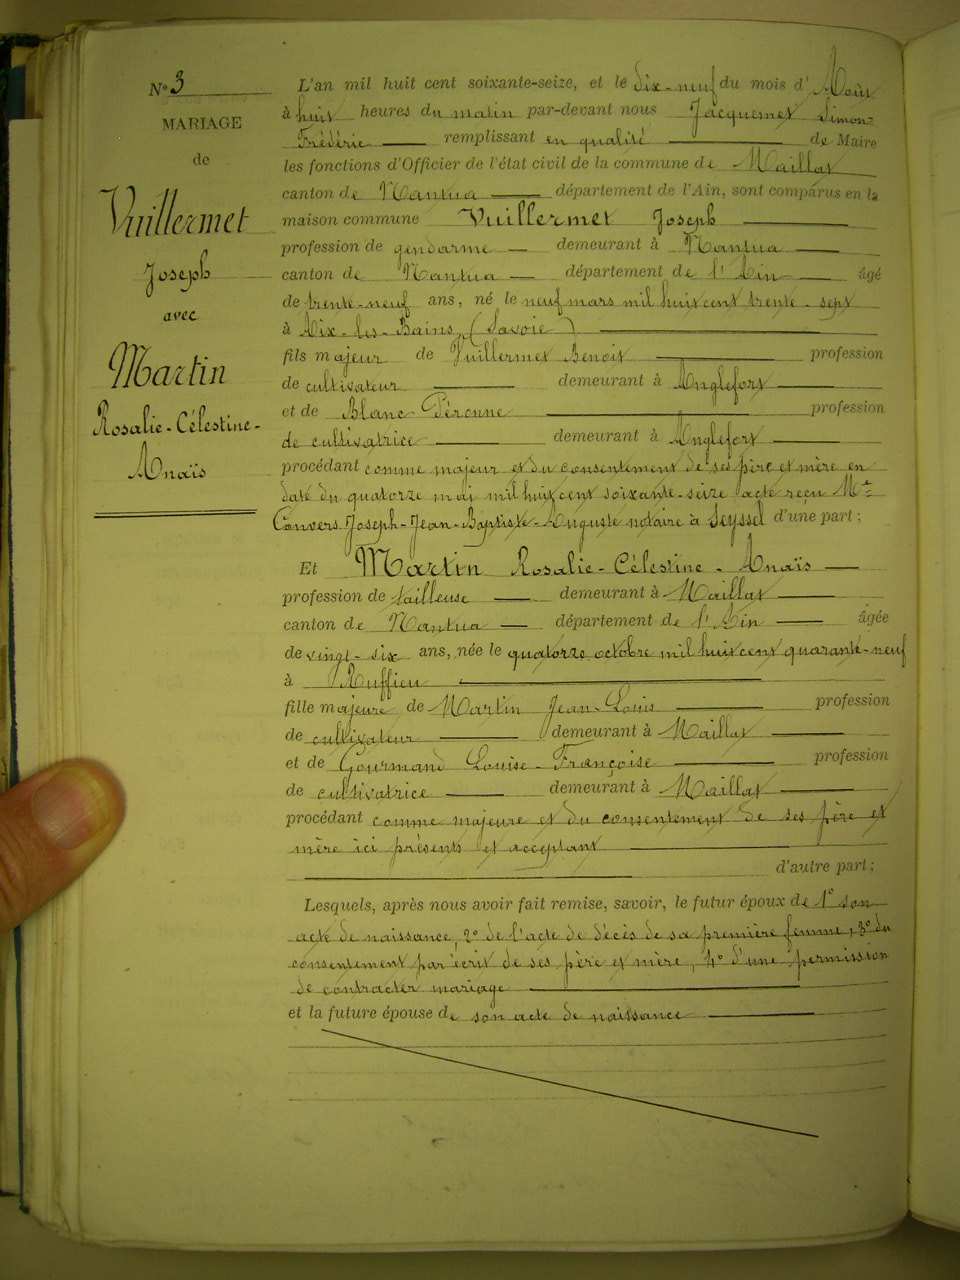 N° 3
MARIAGE
de
Vuillermet
Joseph
avec
Martin
Rosalie-Célestine-
Anaïs
L'an mil huit cent soixante-seize, et le dix-neuf du mois d'Août
à huit heures du matin par-devant nous Jacquemet Simon-
Frédéric remplissant en qualité de Maire
les fonctions d'Officier de l'état civil de la commune de Maillat
canton de Nantua département de l'Ain, sont comparus en la
maison commune Vuillermet Joseph
profession de gendarme demeurant à Nantua
canton de Nantua département de l'Ain âgé
de trente-neuf ans, né le neuf mars mil huit cent trente-sept
à Aix-les-Bains (Savoie)
fils majeur de Vuillermet Benoit profession
de cultivateur demeurant à Anglefort
et de Blanc Péronne profession
de cultivatrice demeurant à Anglefort
procédant comme majeur et du consentement de ses père et mère en
date du quatorze mai mil huit cent soixante-seize acte reçu Me
Convers Joseph-Jean-Baptiste-Auguste notaire à Seyssel d'une part;
Et Martin Rosalie-Célestine-Anaïs
profession de tailleuse demeurant à Maillat
canton de Nantua département de l'Ain âgée
de vingt-six ans, née le quatorze octobre mil huit cent quarante-neuf
à Ruffieu
fille majeure de Martin Jean-Louis profession
de cultivateur demeurant à Maillat
et de Gourmand Louise-Françoise profession
de cultivatrice demeurant à Maillat
procédant comme majeure et du consentement de ses père et
mère ici présents et acceptant
d'autre part;
Lesquels, après nous avoir fait remise, savoir, le futur époux de 1° son
acte de naissance, 2° de l'acte de décès de sa première femme, 3° du
consentement par écrit de ses père et mère, 4° d'une permission
de contracter mariage
et la future épouse de son acte de naissance